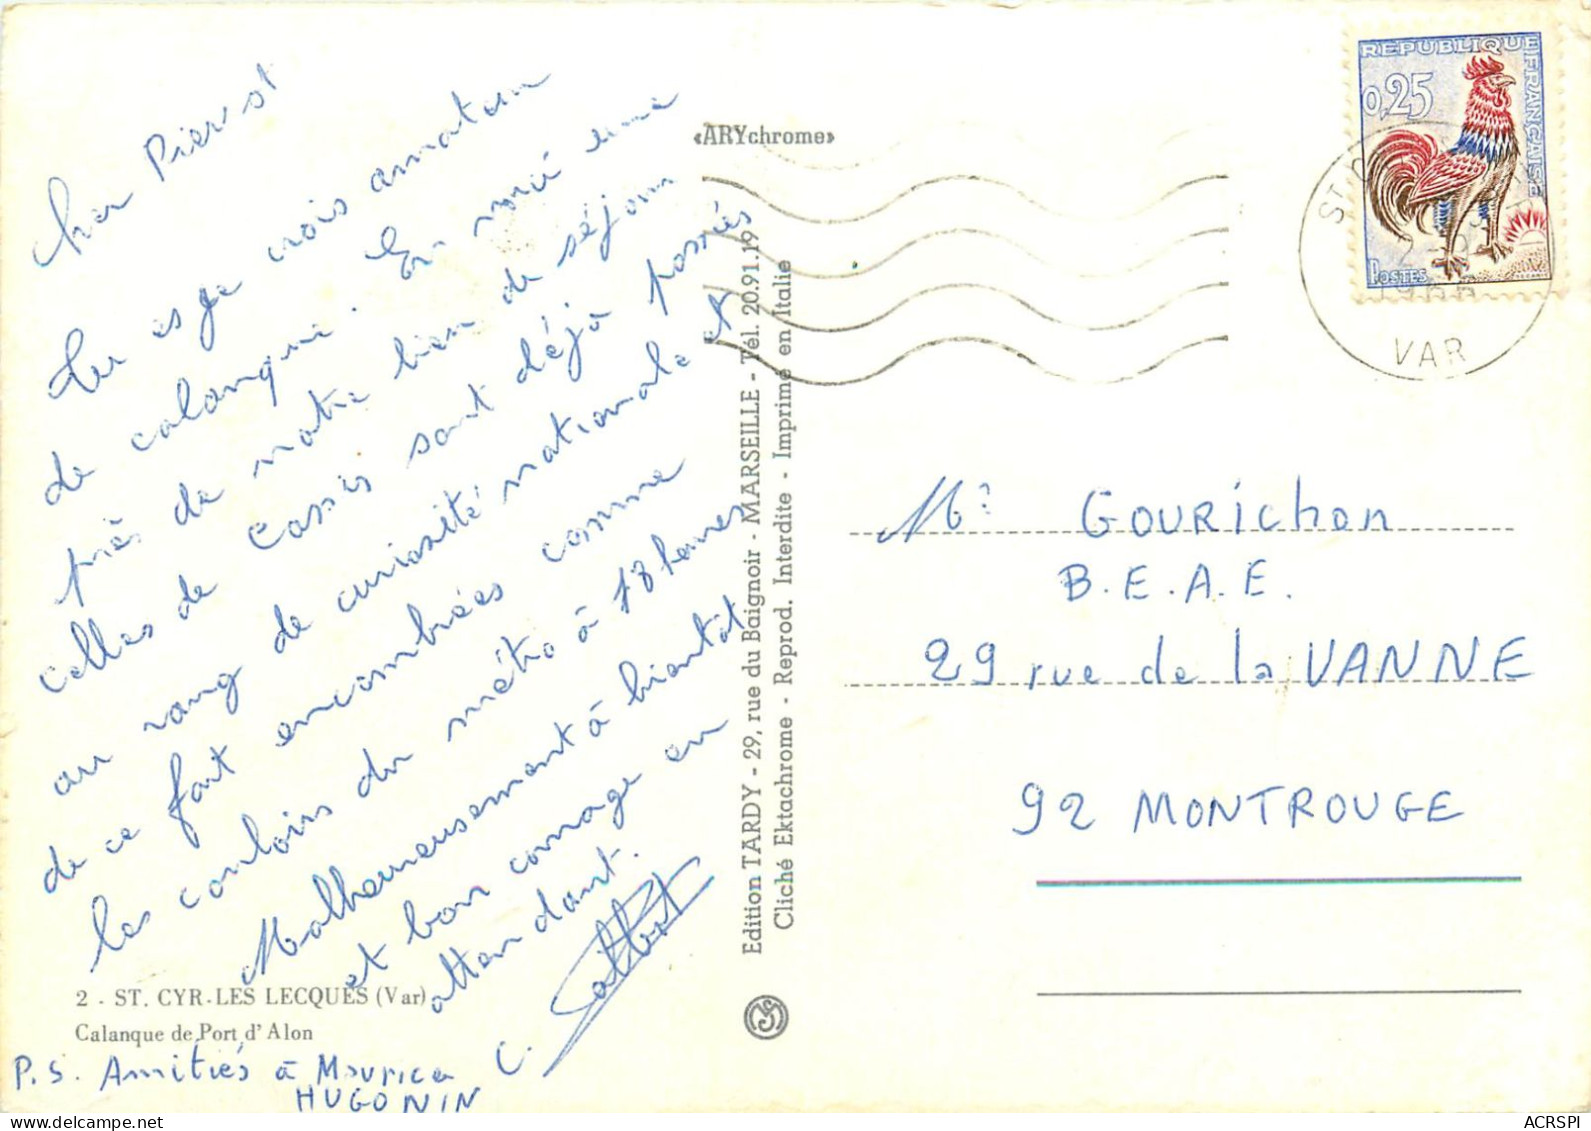 Cher Pierrot
Tu es je crois amateur
de calanque. En voici une
près de notre lieu de séjour
celles de Cassis sont déjà passées
au rang de curiosité nationale et
de ce fait encombrées comme
les couloirs du métro à 18 heures
Malheureusement à bientôt
et bon courage en
attendant.
C.
2 - ST. CYR-LES LECQUES (Var)
Calanque de Port d'Alon
P.S. Amitiés à Maurice
HUGONIN
«ARYchrome»
Edition TARDY - 29, rue du Baignoir - MARSEILLE - Tél. 20.91.19
Cliché Ektachrome - Reprod. Interdite - Imprimé en Italie
REPUBLIQUE FRANÇAISE
0,25
POSTES
ST
VAR
Mr GOURichon
B.E.A.E.
29 rue de la VANNE
92 MONTROUGE
ACRSPI